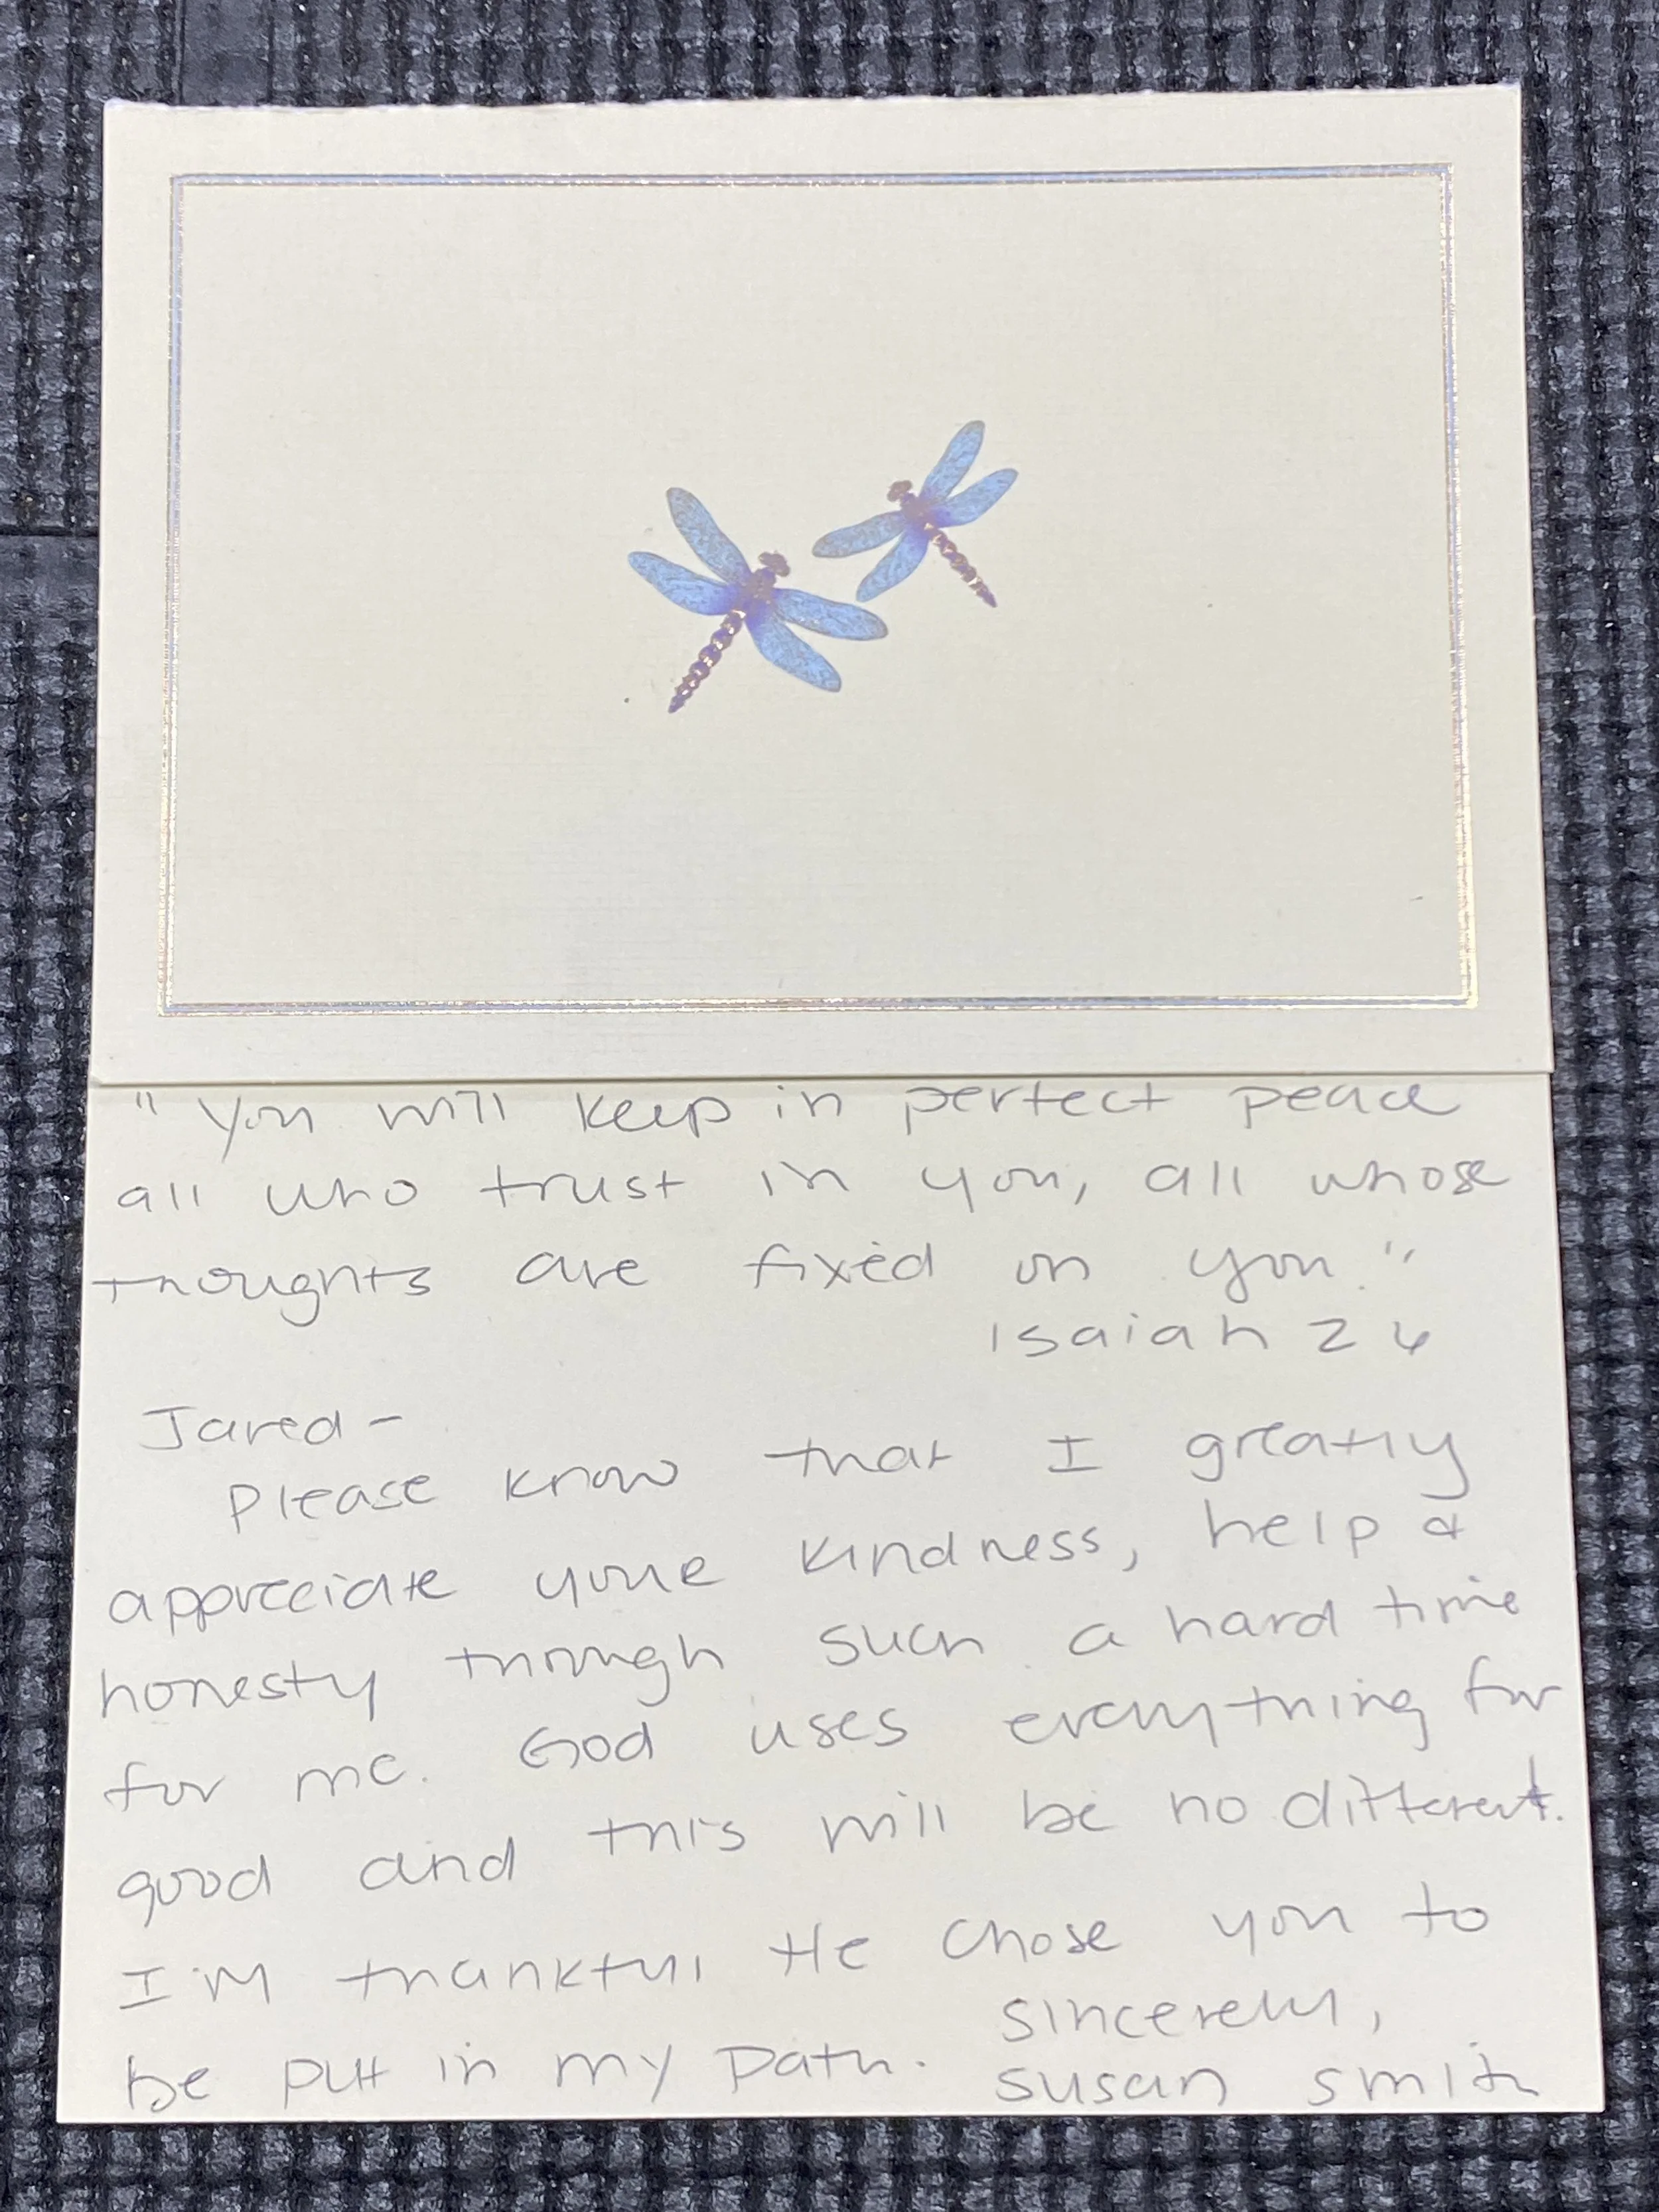 "You will keep in perfect peace
all who trust in you, all whose
thoughts are fixed on you."
Isaiah 26
Jared-
Please know that I greatly
appreciate your kindness, help &
honesty through such a hard time
for me. God uses everything for
good and this will be no different.
I'm thankful He chose you to
be put in my path.
Sincerely,
Susan Smith